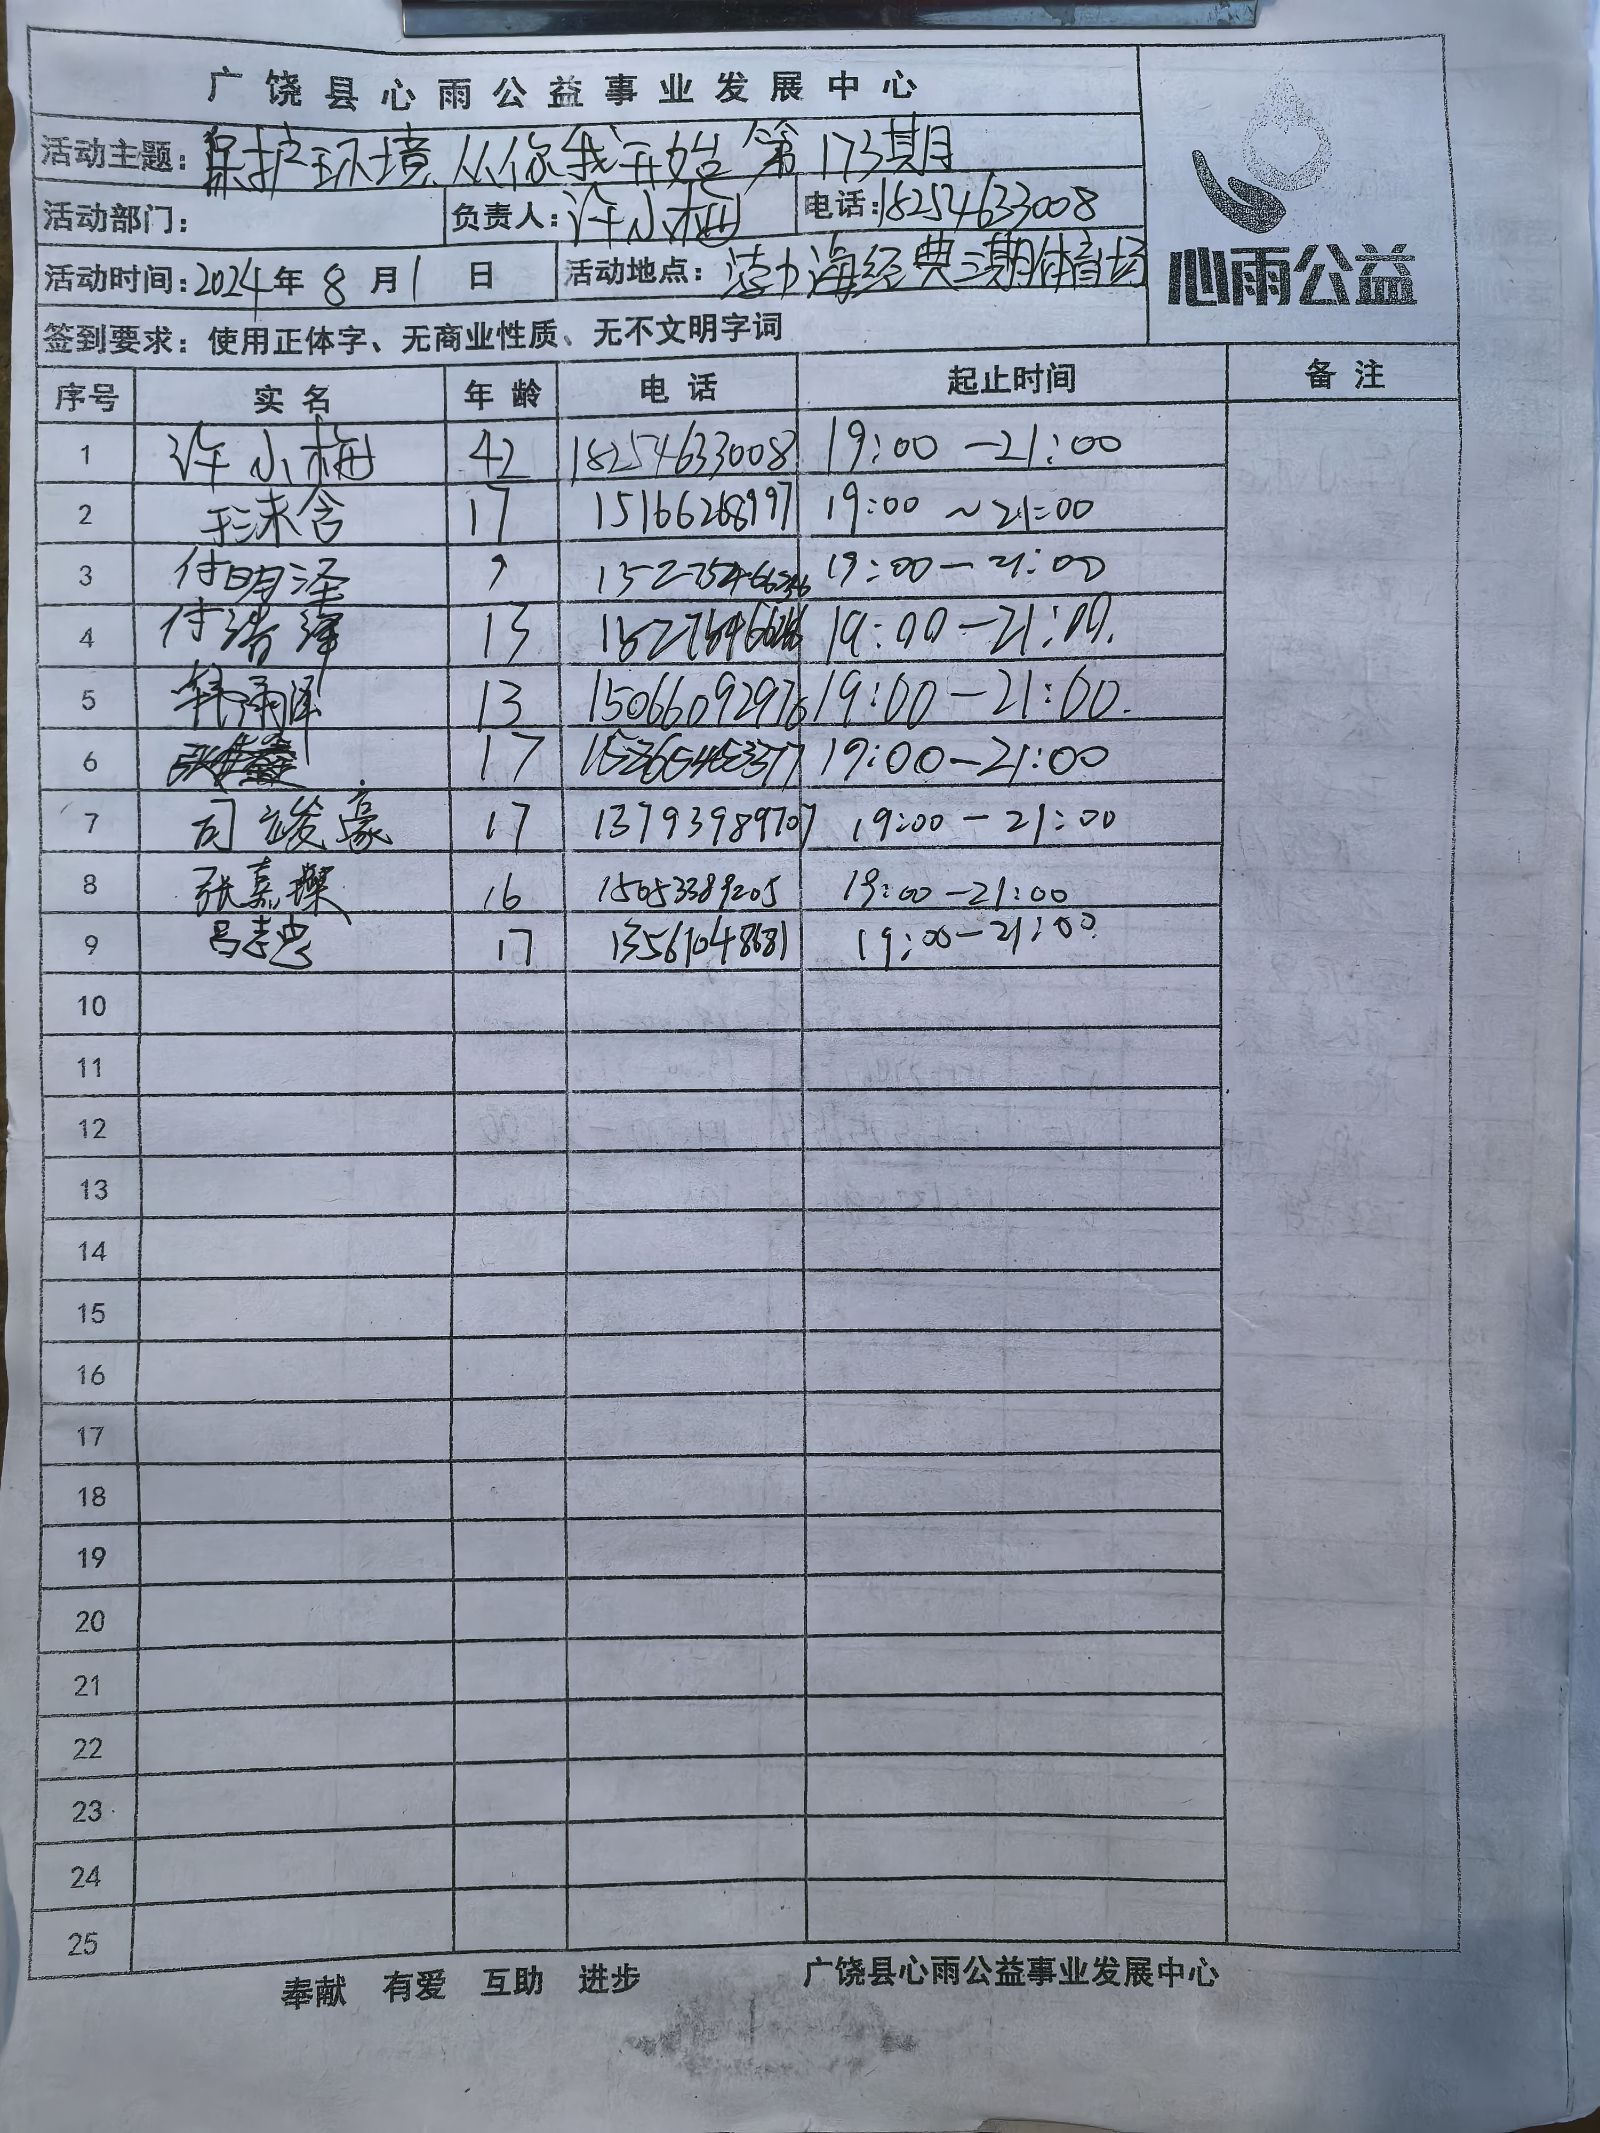 广饶县心雨公益事业发展中心
活动主题：保护环境从你我开始 第173期
活动部门： 负责人：许小梅 电话：18254633008
活动时间：2024年8月1日 活动地点：渤海经典三期体育场
心雨公益
签到要求：使用正体字、无商业性质、无不文明字词
序号 实名 年龄 电话 起止时间 备注
1 许小梅 42 18254633008 19:00-21:00
2 17 15166268997 19:00~21:00
3 付明泽 19:00-21:00
4 付浩泽 13 19:00-21:00.
5 韩雨泽 13 15066092976 19:00-21:00.
6 17 19:00-21:00
7 司竣豪 17 13793989707 19:00-21:00
8 张嘉璨 16 15053389205 19:00-21:00
9 吕志忠 17 13561048681 19:00-21:00
10
11
12
13
14
15
16
17
18
19
20
21
22
23
24
25
奉献 有爱 互助 进步 广饶县心雨公益事业发展中心